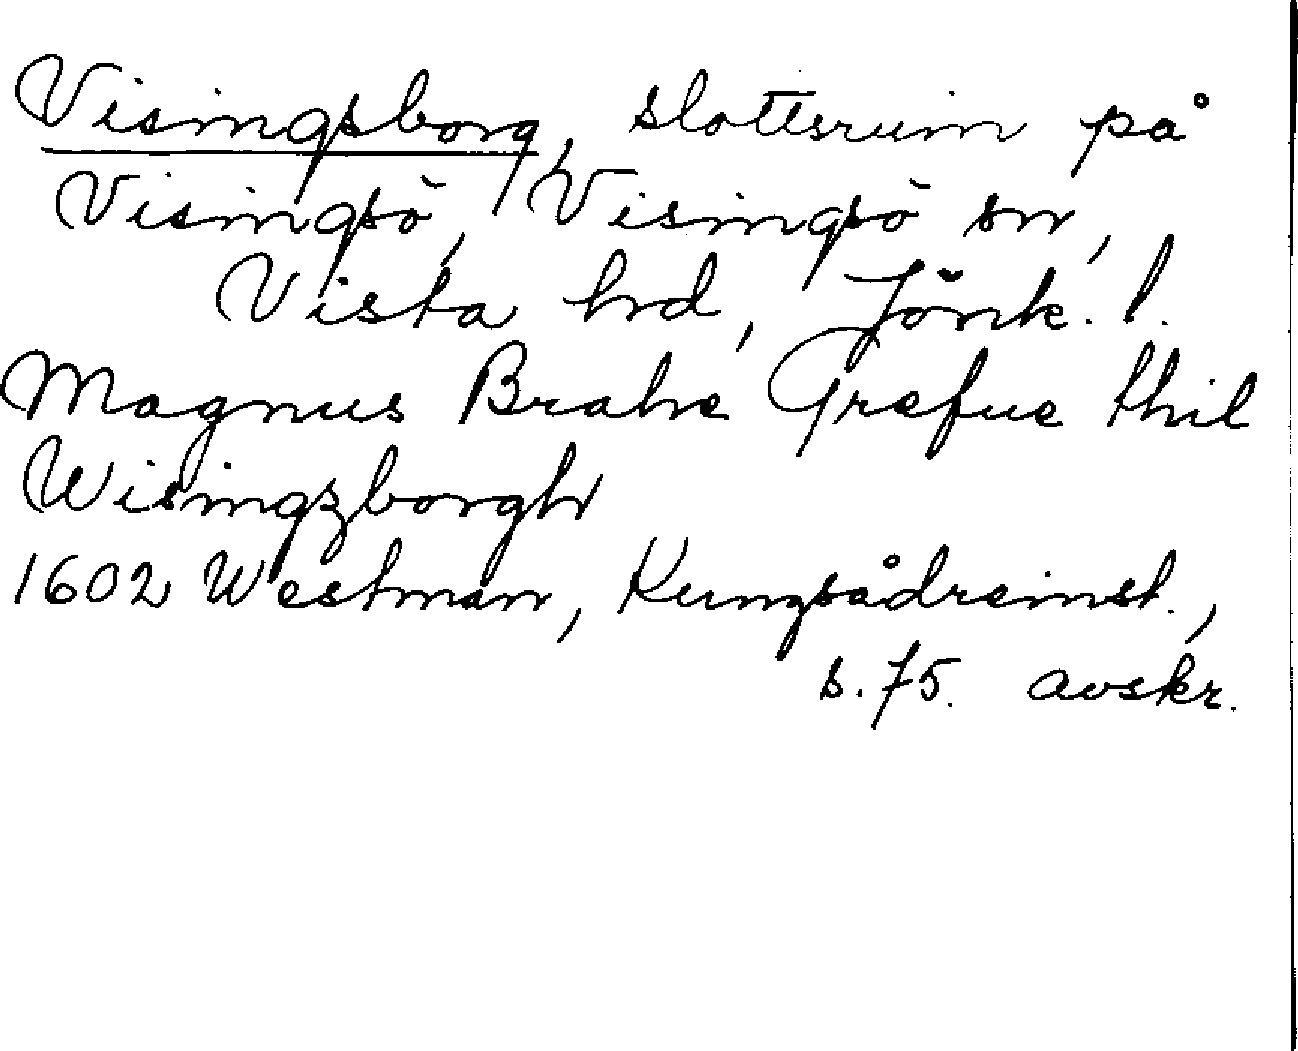 Visingsborg, slottsruin på
Visingsö, Visingsö sn,
Vista hrd, Jönk. l.
Magnus Brahe Grefue thil
Wisingzborgh
1602 Westman, Kungsådreinst.,
s. 75. avskr.